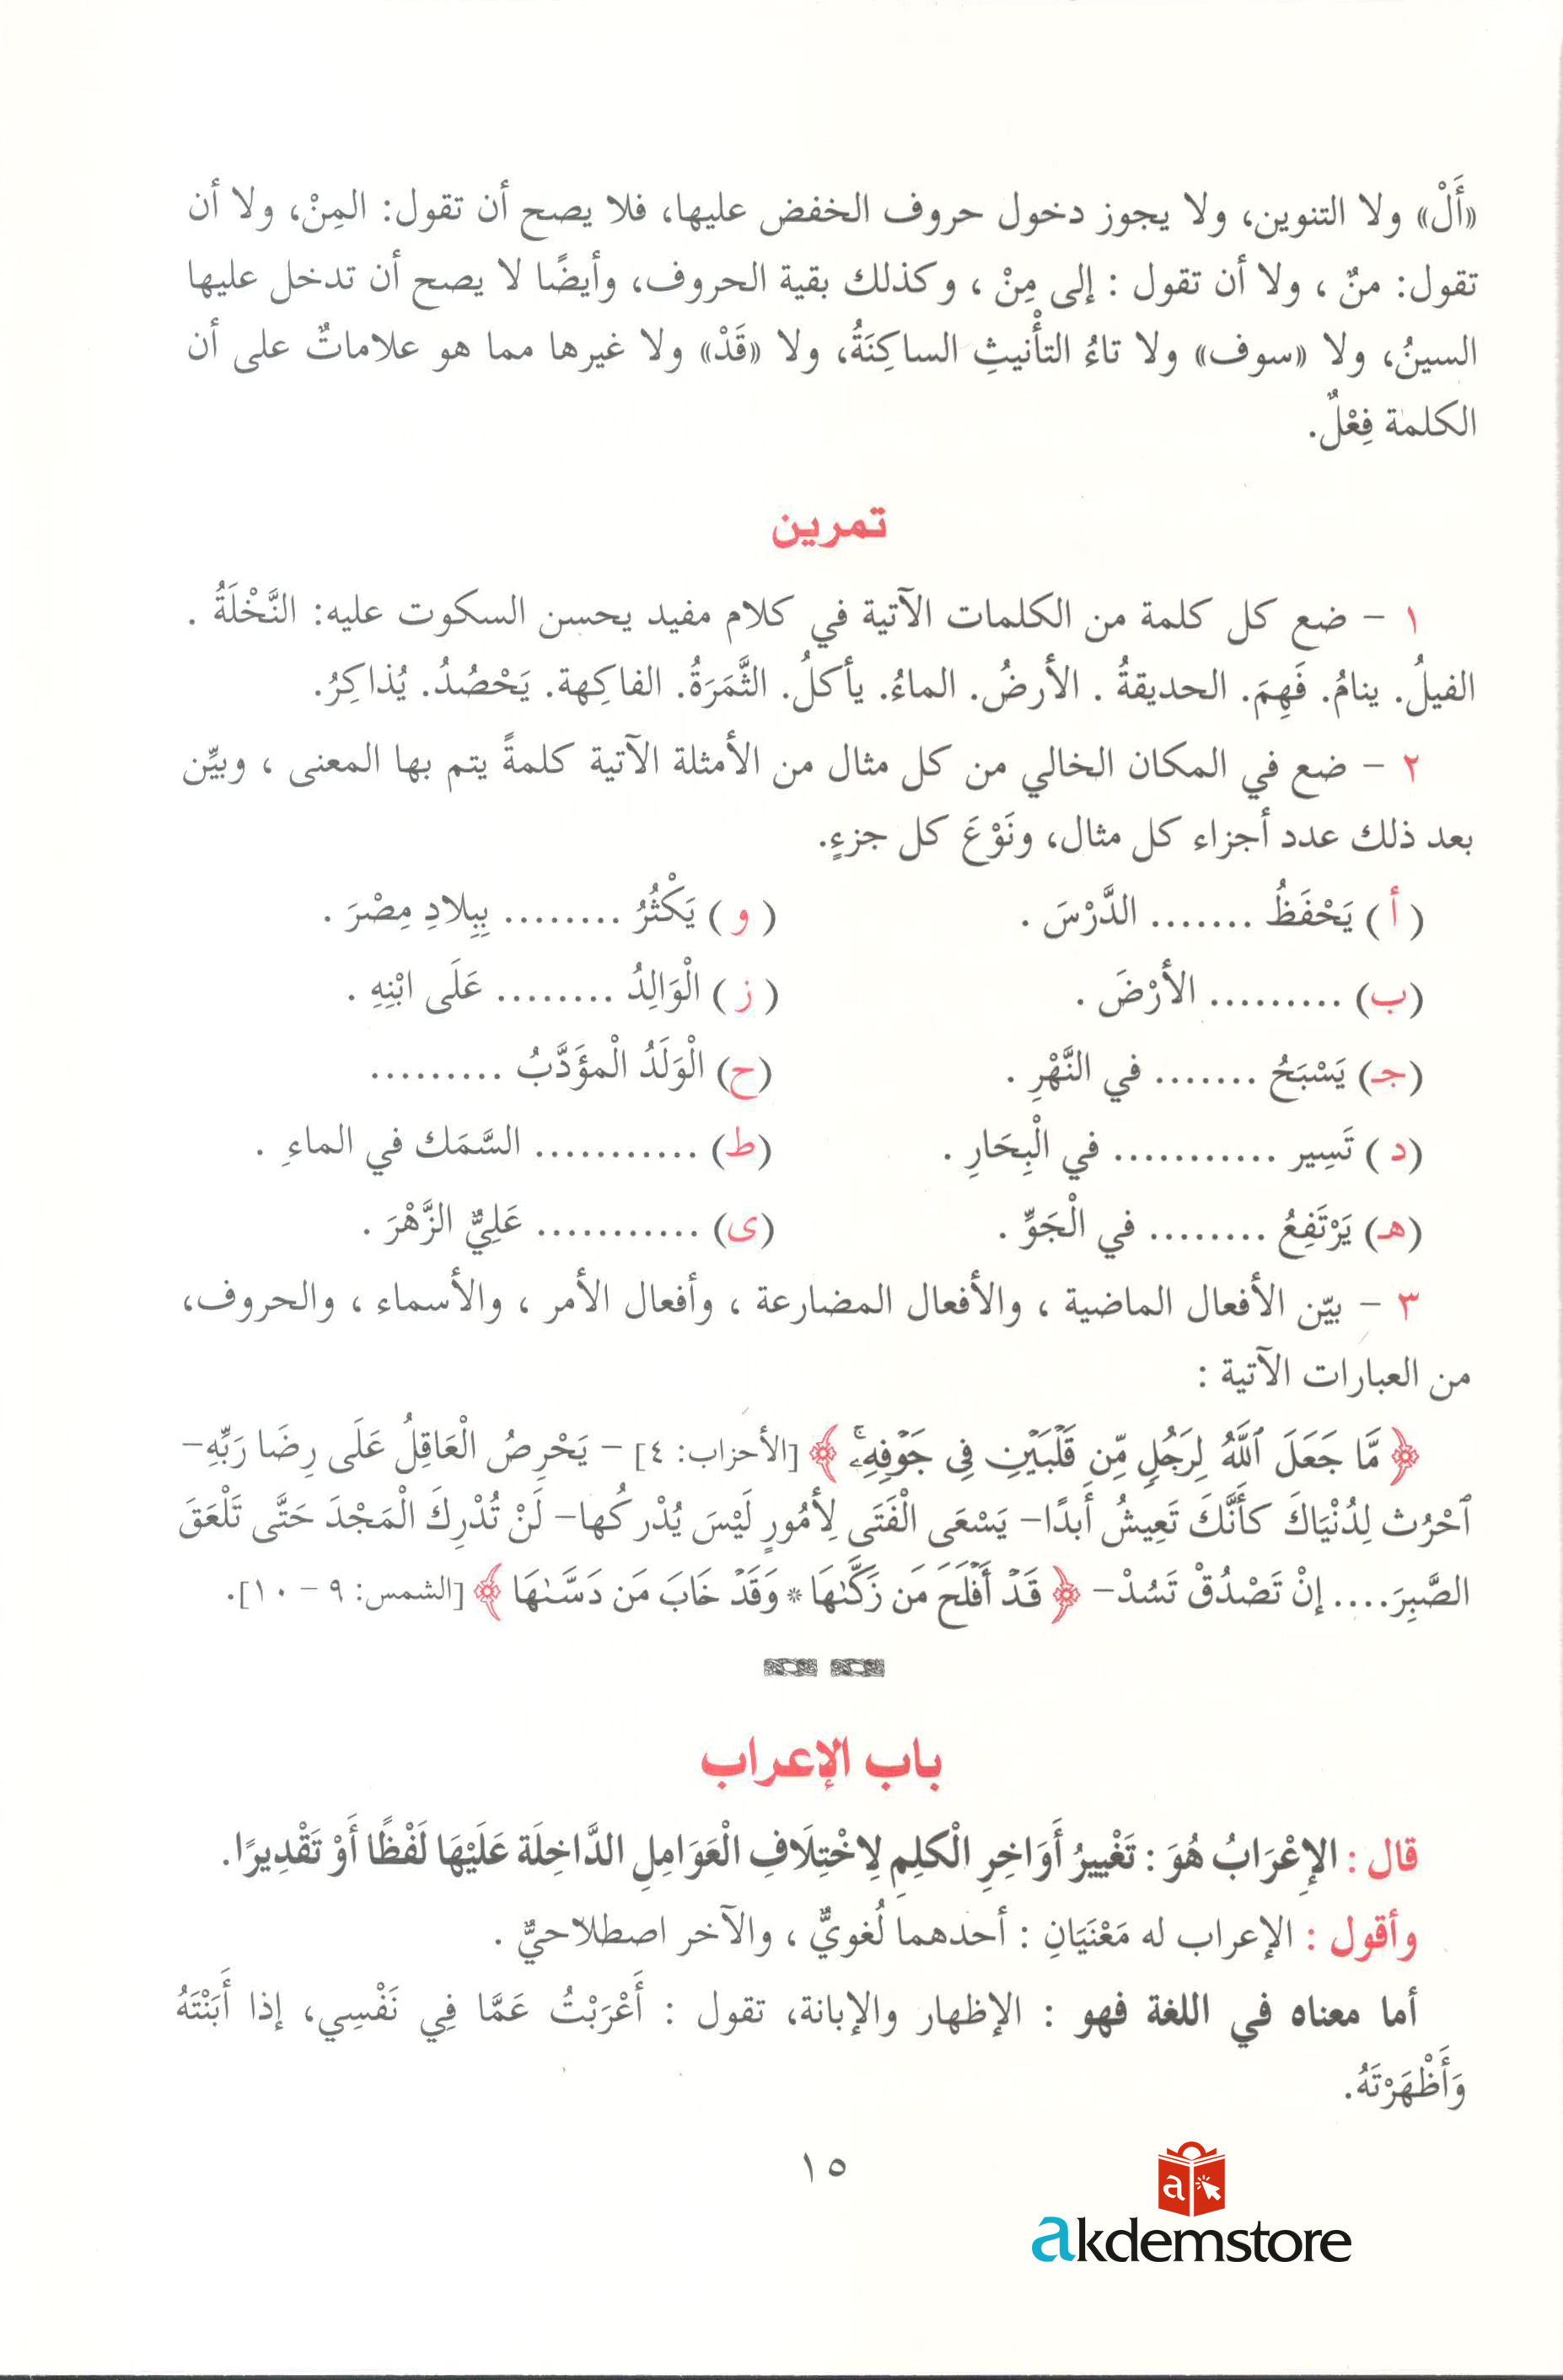 «أَلْ» ولا التنوين، ولا يجوز دخول حروف الخفض عليها، فلا يصح أن تقول: المِنْ، ولا أن
تقول: منٌ ، ولا أن تقول : إلى مِنْ ، وكذلك بقية الحروف، وأيضًا لا يصح أن تدخل عليها
السينُ، ولا «سوف» ولا تاءُ التأْنيثِ الساكِنَةُ، ولا «قَدْ» ولا غيرها مما هو علاماتٌ على أن
الكلمة فِعْلٌ.
تمرين
١ – ضع كل كلمة من الكلمات الآتية في كلام مفيد يحسن السكوت عليه: النَّخْلَةُ .
الفيلُ. ينامُ. فَهِمَ. الحديقةُ . الأرضُ. الماءُ. يأكلُ. الثَّمَرَةُ. الفاكِهة. يَحْصُدُ. يُذاكِرُ.
٢ – ضع في المكان الخالي من كل مثال من الأمثلة الآتية كلمةً يتم بها المعنى ، وبيِّن
بعد ذلك عدد أجزاء كل مثال، ونَوْعَ كل جزءٍ.
( أ ) يَحْفَظُ ....... الدَّرْسَ . ( و ) يَكْثُرُ ........ بِبِلادِ مِصْرَ .
(ب) .......... الأرْضَ . ( ز ) الْوَالِدُ ........ عَلَى ابْنِهِ .
(جـ) يَسْبَحُ ....... في النَّهْرِ . (ح) الْوَلَدُ الْمؤَدَّبُ .........
(د ) تَسِير ........... في الْبِحَارِ . (ط) ........... السَّمَك في الماءِ .
(هـ) يَرْتَفِعُ ........ في الْجَوِّ . (ى) ........... عَلِيٌّ الزَّهْرَ .
٣ – بيّن الأفعال الماضية ، والأفعال المضارعة ، وأفعال الأمر ، والأسماء ، والحروف،
من العبارات الآتية :
﴿ مَّا جَعَلَ ٱللَّهُ لِرَجُلٍ مِّن قَلْبَيْنِ فِى جَوْفِهِۦۚ ﴾ [الأحزاب: ٤] – يَحْرِصُ الْعَاقِلُ عَلَى رِضَا رَبِّهِ–
ٱحْرُث لِدُنْيَاكَ كأَنَّكَ تَعِيشُ أَبدًا– يَسْعَى الْفَتَى لِأمُورٍ لَيْسَ يُدْركُها– لَنْ تُدْرِكَ الْمَجْدَ حَتَّى تَلْعَقَ
الصَّبِرَ.... إنْ تَصْدُقْ تَسُدْ– ﴿ قَدْ أَفْلَحَ مَن زَكَّىٰهَا * وَقَدْ خَابَ مَن دَسَّىٰهَا ﴾ [الشمس: ٩ – ١٠].
باب الإعراب
قال : الإِعْرَابُ هُوَ : تَغْيِيرُ أَوَاخِرِ الْكلِمِ لِاخْتِلَافِ الْعَوَامِلِ الدَّاخِلَة عَلَيْهَا لَفْظًا أَوْ تَقْدِيرًا.
وأقول : الإعراب له مَعْنَيَانِ : أحدهما لُغويٌّ ، والآخر اصطلاحيٌّ .
أما معناه في اللغة فهو : الإظهار والإبانة، تقول : أَعْرَبْتُ عَمَّا فِي نَفْسِي، إذا أَبَنْتَهُ
وَأَظْهَرْتَهُ.
١٥
a
akdemstore